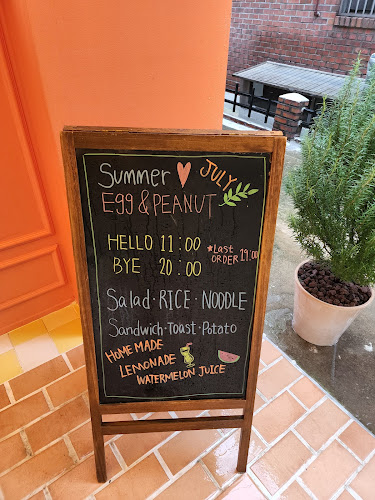 Summer ♥ JULY
EGG & PEANUT
HELLO 11:00
BYE 20:00
*Last ORDER 19:00
Salad · RICE · NOODLE
Sandwich · Toast · Potato
HOME MADE
LEMONADE
WATERMELON JUICE